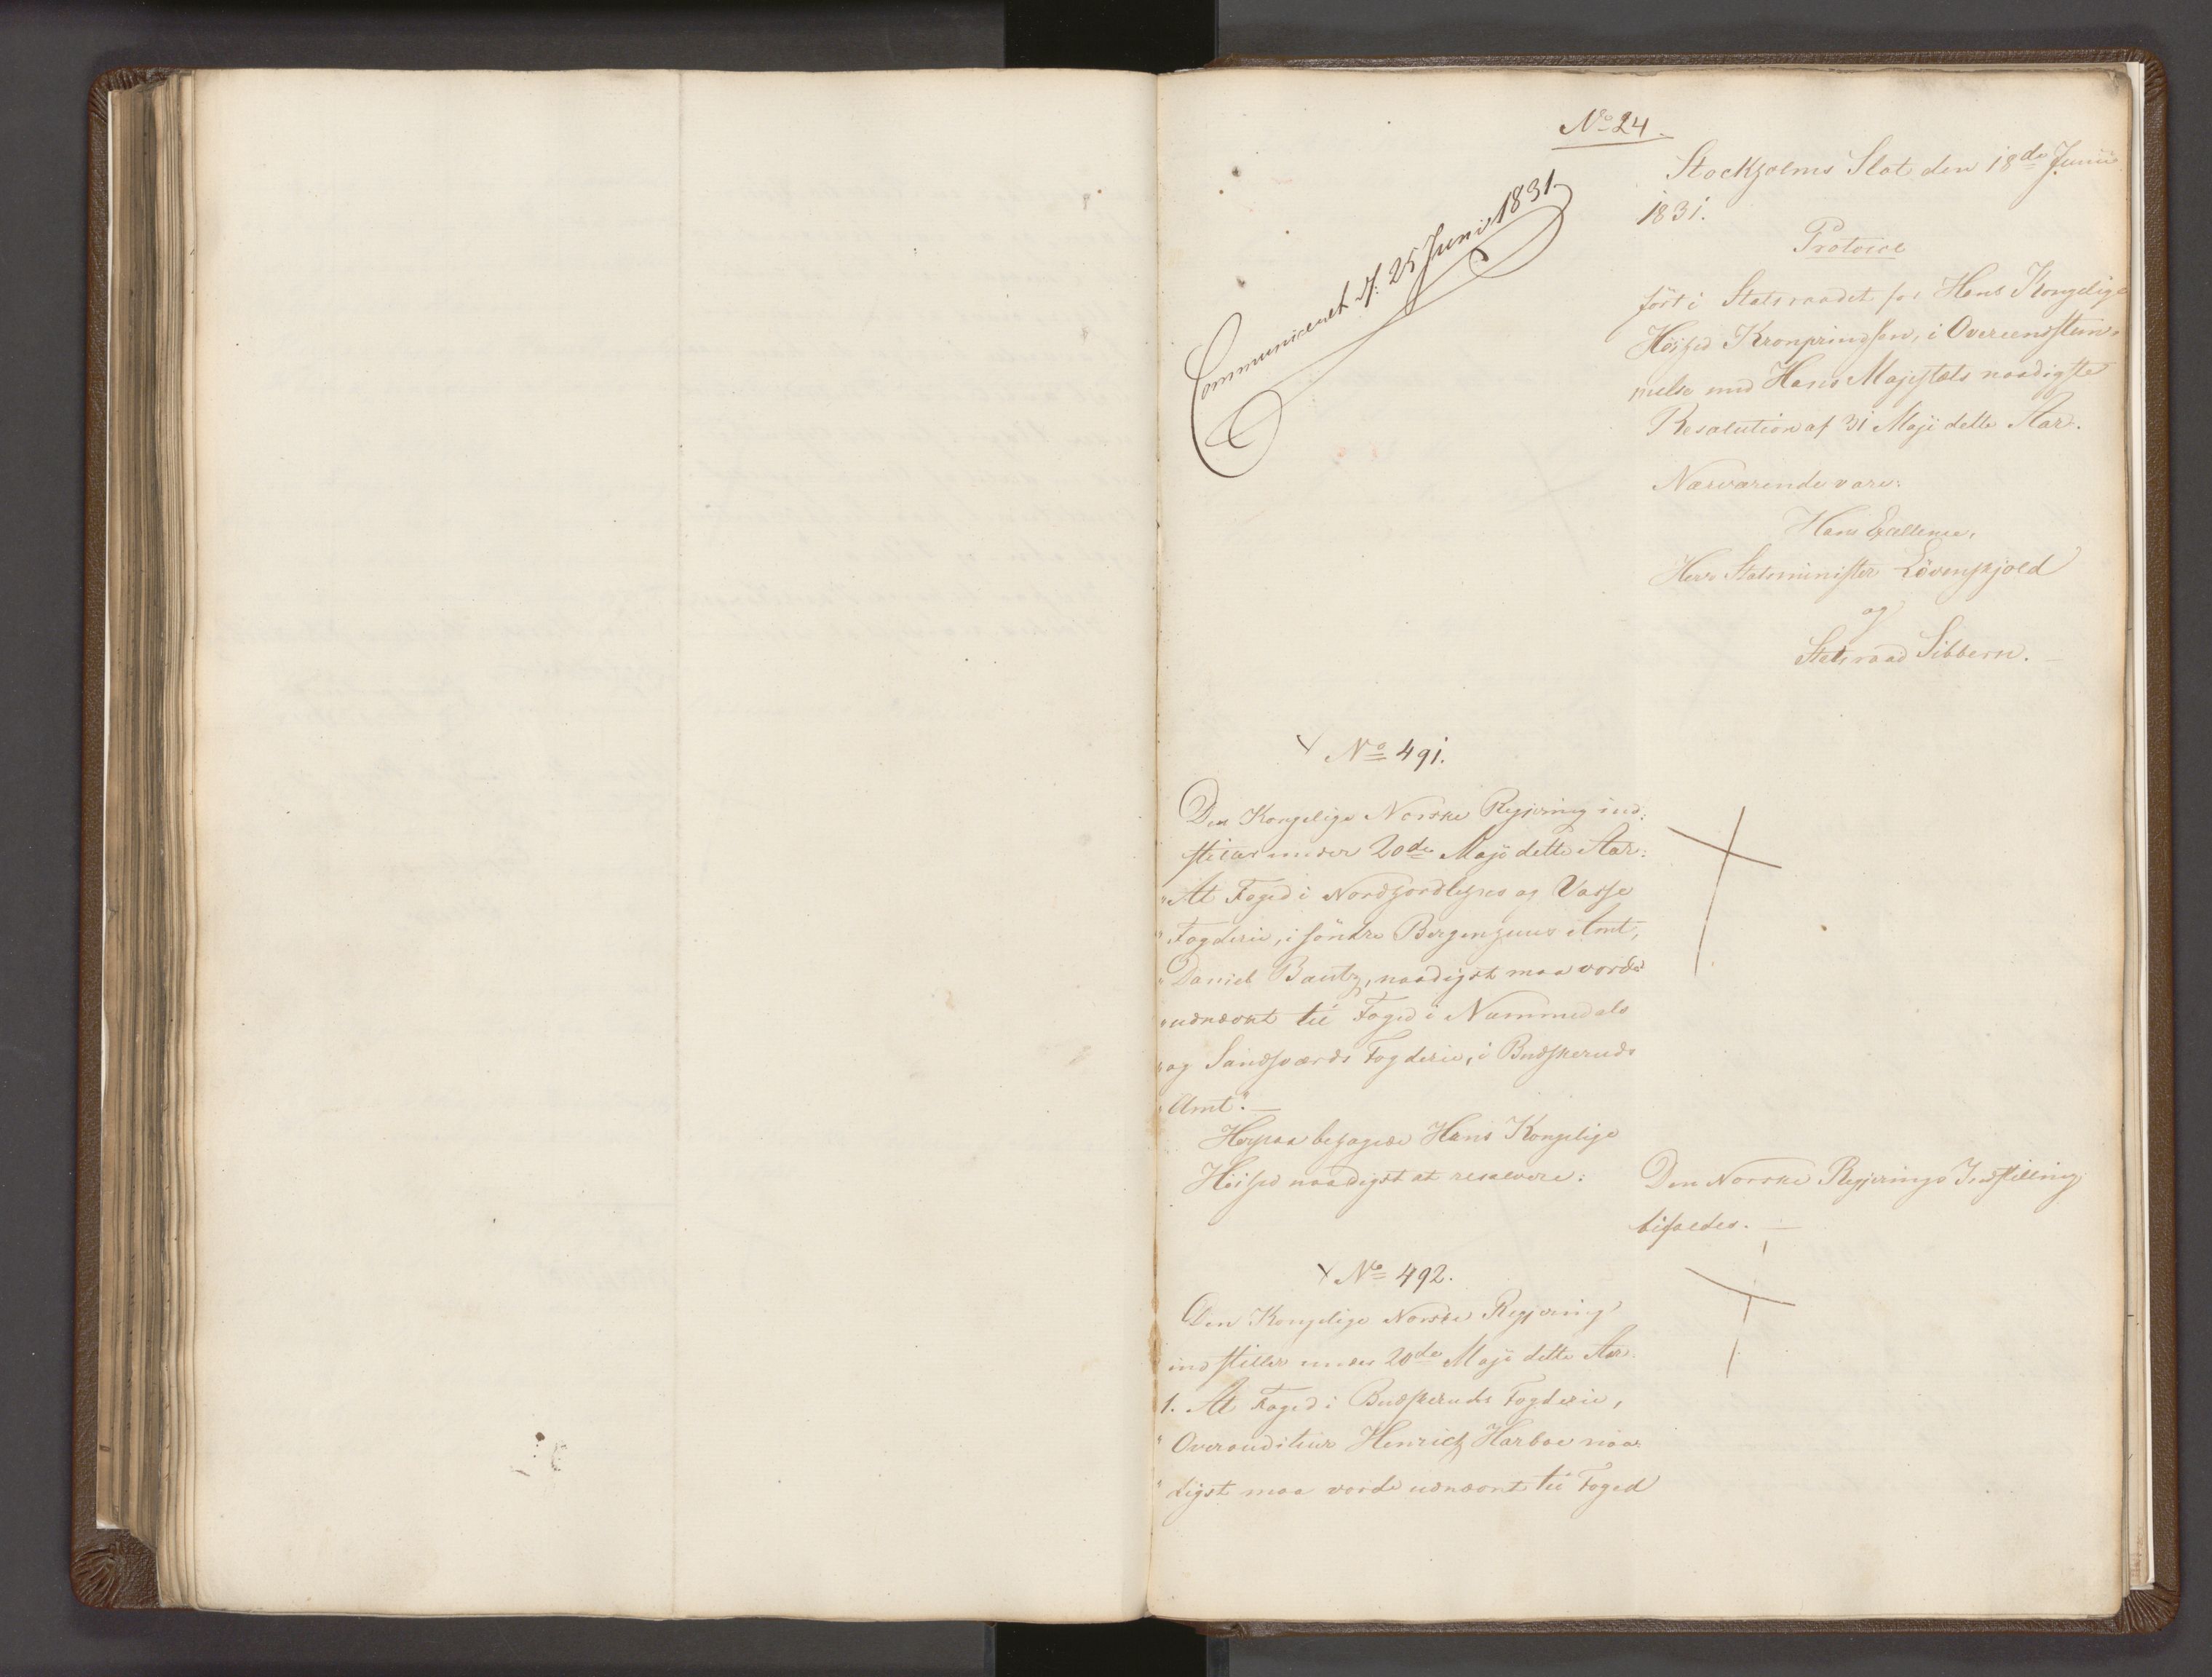 No 24.
Stockholms Slot den 18de Junii
1831.
Communiceret d. 25 Juni 1831.
Protocol
fört i Statsraadet for Hans Kongelige
Höihed Kronprindsen, i Overeensstem-
melse med Hans Majestæts naadigste
Resolution af 31 Maji dette Aar.
Nærværende vare:
Hans Excellence,
Herr Statsminister Lövenskjold
og
Statsraad Sibbern.
No 491.
Den Kongelige Norske Regjering ind-
stiller under 20de Maji dette Aar:
"At Foged i Nordhordlehns og Vosse
"Fogderie, i söndre Bergenhuus Amt,
"Daniel Bautz, naadigst maa vorde
"udnævnt til Foged i Nummedals
"og Sandsværds Fogderie, i Budskeruds
"Amt".
Herpaa behagede Hans Kongelige
Höihed naadigst at resolvere:
Den Norske Regjerings Indstilling
bifaldes.
No 492.
Den Kongelige Norske Regjering
indstiller under 20de Maji dette Aar.
1. At Foged i Budskeruds Fogderie,
" Overauditeur Henrich Harboe naa-
" digst maa vorde udnævnt til Foged